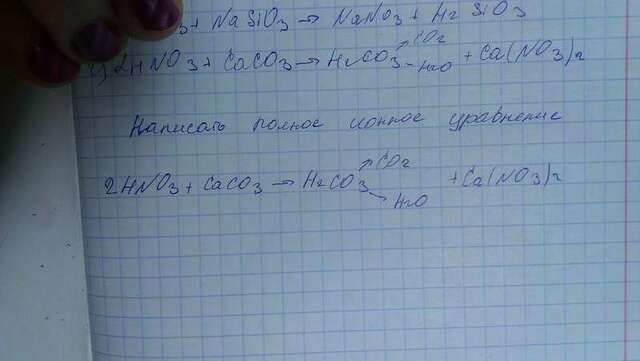 3 + NaSiO3 → NaNO3 + H2SiO3
2) 2HNO3 + CaCO3 → H2CO3 CO2 H2O + Ca(NO3)2
Написать полное ионное уравнение
2HNO3 + CaCO3 → H2CO3 ↗ CO2 ↘ H2O + Ca(NO3)2